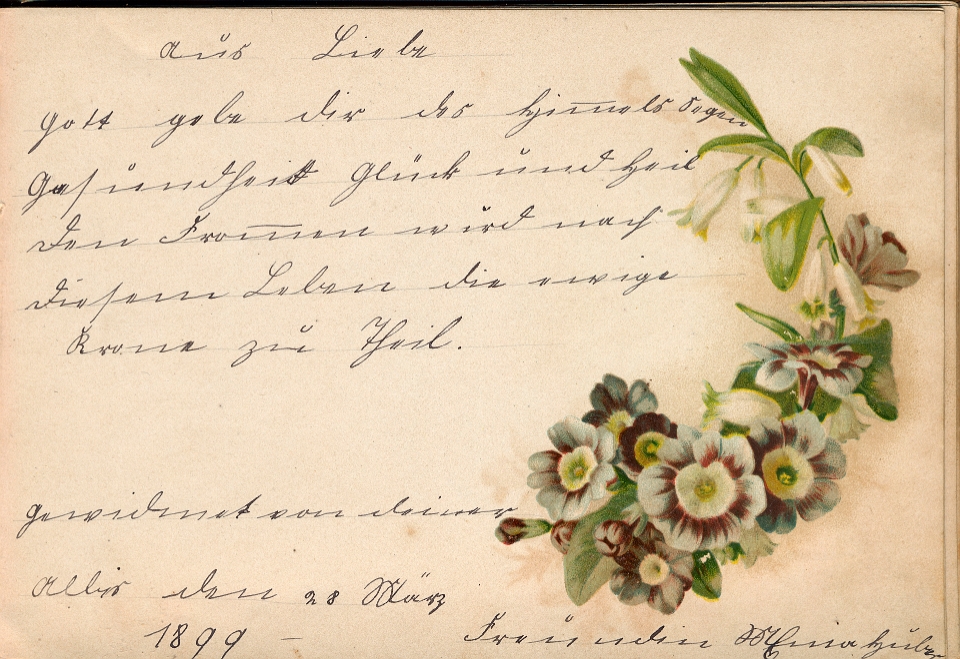 Aus Liebe
Gott gebe dir des Himmels Segen
Gesundheit Glück und Heil
Den Frommen wird nach
diesem Leben die ewige
Krone zu Theil.
gewidmet von deiner
Albis den 28 März
1899 –
Freundin Mina Huber